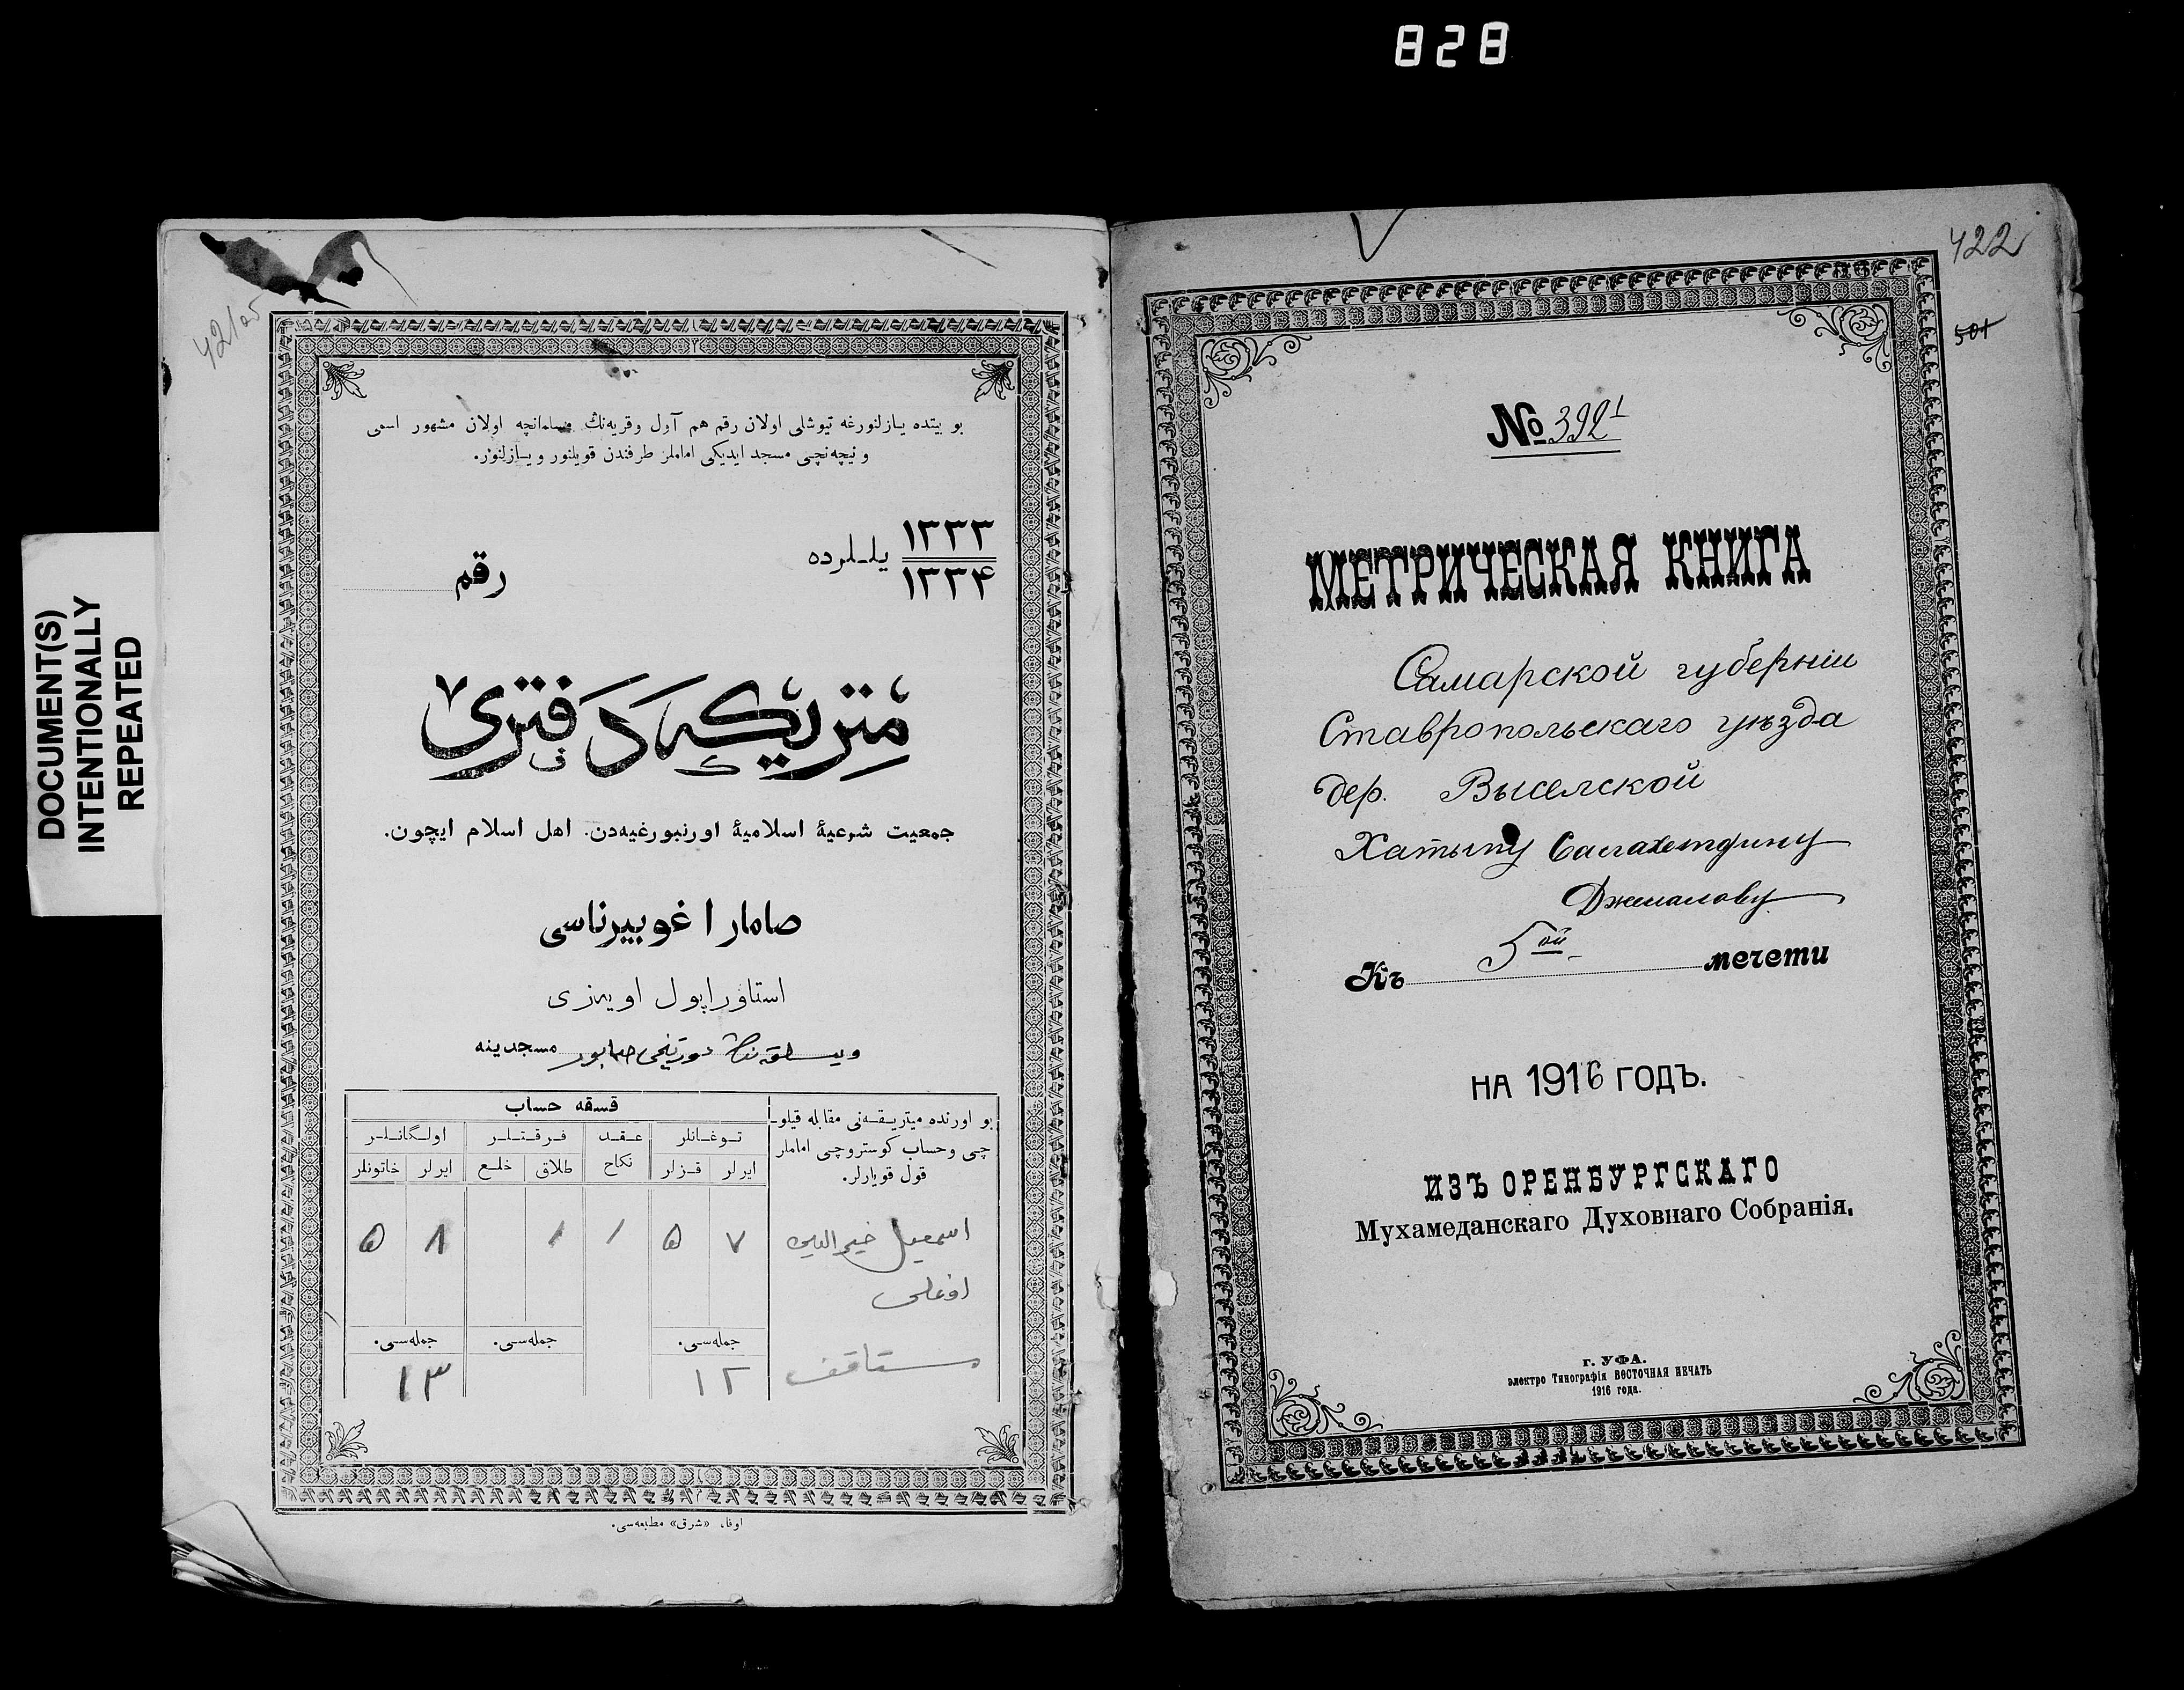 828
DOCUMENT(S)
INTENTIONALLY
REPEATED
421об
بو بيتده يازلنورغه تيوشلى اولان رقم هم آول وقريه‌نڭ مسلمانچه اولان مشهور اسمى
و نيچه‌نچى مسجد ايديكى اماملر طرفندن قويلنور و يازلنور.
١٣٣٣
١٣٣۴
يللرده
رقم
متريكه دفترى
جمعيت شرعيهٔ اسلاميهٔ اورنبورغيه‌دن. اهل اسلام ايچون.
صامارا غوبيرناسى
استاوراپول اويه‌زى
مسجدينه
بو اورنده ميتريقه‌نى مقابله قيلو-
چى وحساب كوستروچى اماملر
قول قويارلر.
قسقه حساب
توغانلر عقد فرقتلر اولگانلر
ايرلر قزلر نكاح طلاق خلع ايرلر خاتونلر
اسمعيل خير الدين
اوغلى
٧ ۵ ١ ١ ٨ ۵
جمله‌سى. جمله‌سى. جمله‌سى.
١٢ ١٣
اوفا، «شرق» مطبعه‌سى.
422
501
№ 3921
МЕТРИЧЕСКАЯ КНИГА
Самарской губерніи
Ставропольскаго уѣзда
дер. Выселской
Хатыпу Салахетдину
Джемалову
Къ 5ой мечети
НА 1916 ГОДЪ.
ИЗЪ ОРЕНБУРГСКАГО
Мухамеданскаго Духовнаго Собранія.
г. УФА.
электро Типографія ВОСТОЧНАЯ ПЕЧАТЬ
1916 года.